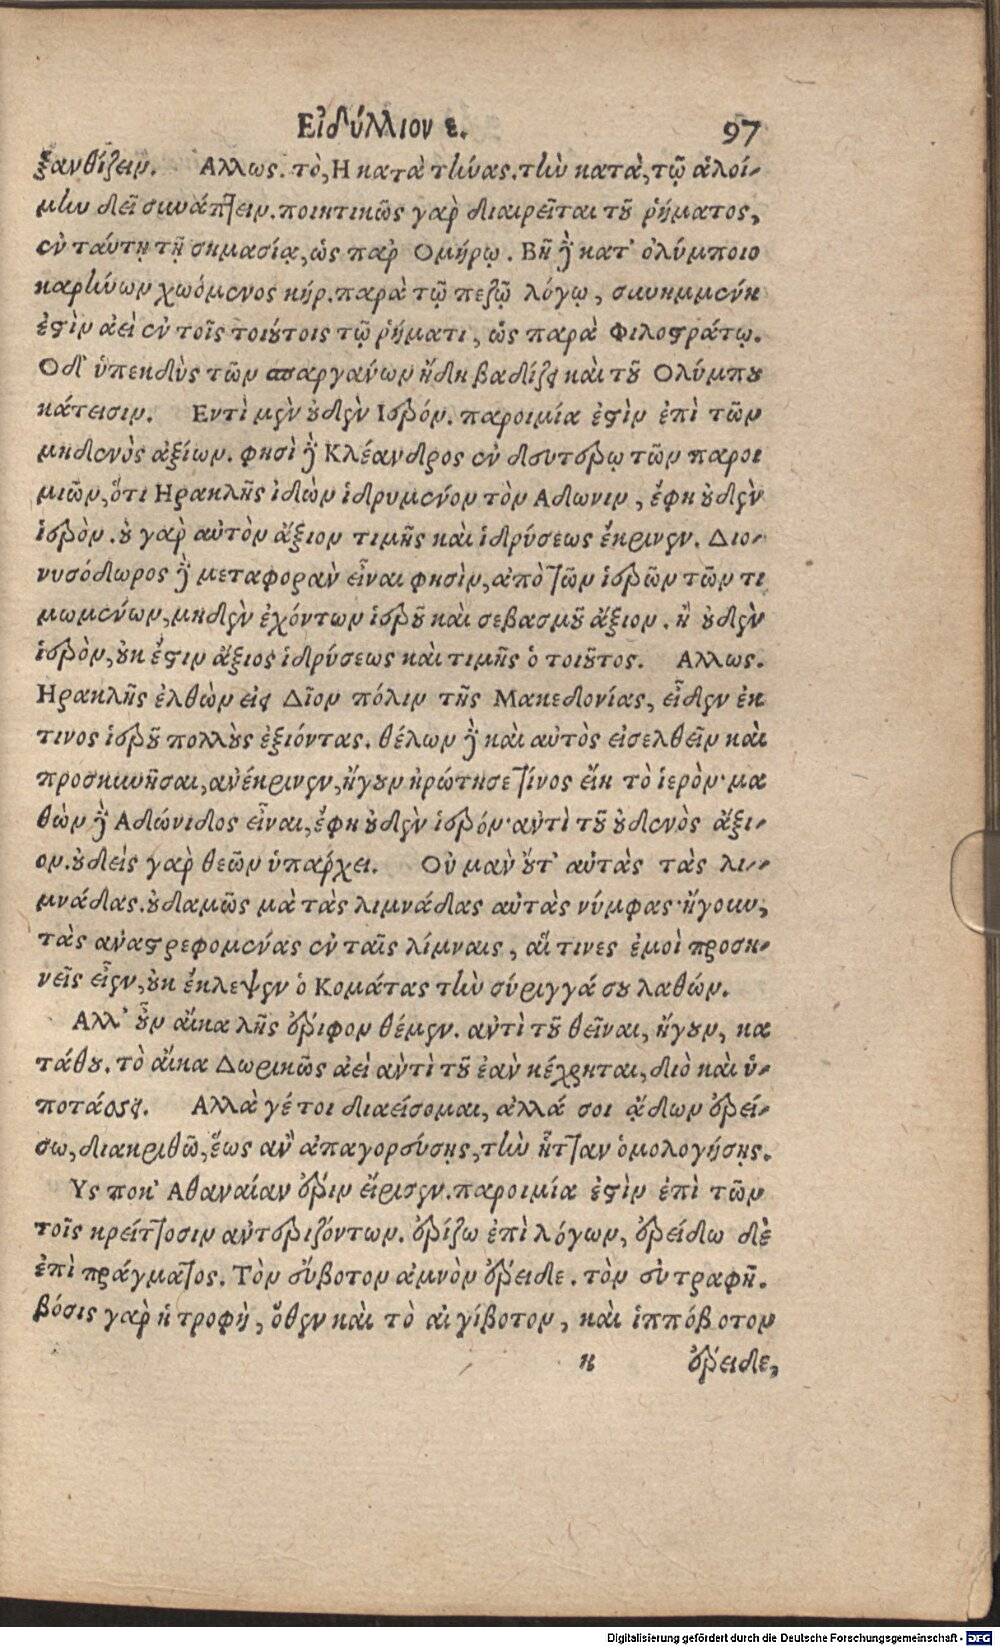 Εἰδύλλιον ε. 97
ξανθίζειν. Αλλως. τὸ, Η κατὰ τήνας. τὴν κατὰ, τῷ ἁλοί-
μην δεῖ συνάπτειν. ποιητικῶς γὰρ διαιρεῖται τοῦ ῥήματος,
ἐν ταύτῃ τῇ σημασίᾳ, ὡς παρ Ομήρῳ. Βῆ δὲ κατ' ὀλύμποιο
καρήνων χωόμενος κήρ. παρὰ τῷ πεζῷ λόγῳ, συνημμένη
ἐστὶν ἀεὶ ἐν τοῖς τοιούτοις τῷ ῥήματι, ὡς παρὰ Φιλοστράτῳ.
Οδ' ὑπεκδὺς τῶν σπαργάνων ἤδη βαδίζει καὶ τοῦ Ολύμπου
κάτεισιν. Εντὶ μὲν οὐδὲν Ιερόν. παροιμία ἐστὶν ἐπὶ τῶν
μηδενὸς ἀξίων. φησὶ δὲ Κλέανδρος ἐν δευτέρῳ τῶν παροι
μιῶν, ὅτι Ηρακλῆς ἰδὼν ἱδρυμένον τὸν Αδωνιν, ἔφη οὐδὲν
ἱερὸν. οὐ γὰρ αὐτὸν ἄξιον τιμῆς καὶ ἱδρύσεως ἔκρινεν. Διο-
νυσόδωρος δὲ μεταφορὰν εἶναι φησὶν, ἀπὸ τῶν ἱερῶν τῶν τι
μωμένων, μηδὲν ἐχόντων ἱεροῦ καὶ σεβασμοῦ ἄξιον. ἢ οὐδὲν
ἱερὸν, οὐκ ἔστιν ἄξιος ἱδρύσεως καὶ τιμῆς ὁ τοιοῦτος. Αλλως.
Ηρακλῆς ἐλθὼν εἰς Δῖον πόλιν τῆς Μακεδονίας, εἶδεν ἐκ
τινος ἱεροῦ πολλοὺς ἐξιόντας. θέλων δὲ καὶ αὐτὸς εἰσελθεῖν καὶ
προσκυνῆσαι, ἀνέκρινεν, ἤγουν ἠρώτησε τίνος εἴη τὸ ἱερὸν· μα
θὼν δὲ Αδώνιδος εἶναι, ἔφη οὐδὲν ἱερόν· ἀντὶ τοῦ οὐδενὸς ἄξι-
ον. οὐδεὶς γὰρ θεῶν ὑπάρχει. Οὐ μὰν οὔτ' αὐτὰς τὰς λι-
μνάδας. οὐδαμῶς μὰ τὰς λιμνάδας αὐτὰς νύμφας· ἤγουν,
τὰς ἀναστρεφομένας ἐν ταῖς λίμναις, αἵ τινες ἐμοὶ προση-
νεῖς εἶεν, οὐκ ἔκλεψεν ὁ Κομάτας τὴν σύριγγά σου λαθών.
Αλλ' οὖν αἴκα λῇς ἔριφον θέμεν. ἀντὶ τοῦ θεῖναι, ἤγουν, κα
τάθου. τὸ αἴκα Δωρικῶς ἀεὶ ἀντὶ τοῦ ἐὰν κέχρηται, διὸ καὶ ὑ-
ποτάσσει. Αλλὰ γέ τοι διαείσομαι, ἀλλά σοι ᾄδων ἐρεί-
σω, διακριθῶ, ἕως ἂν ἀπαγορεύσῃς, τὴν ἧτταν ὁμολογήσῃς.
Υς ποκ' Αθαναίαν ἔριν ἤρισεν. παροιμία ἐστὶν ἐπὶ τῶν
τοῖς κρείττοσιν ἀντεριζόντων. ἐρίζω ἐπὶ λόγων, ἐρείδω δὲ
ἐπὶ πράγματος. Τὸν εὔβοτον ἀμνὸν ἔρειδε. τὸν εὐτραφῆ.
βόσις γὰρ ἡ τροφὴ, ὅθεν καὶ τὸ αἰγίβοτον, καὶ ἱππόβοτον
κ ἔρειδε,
Digitalisierung gefördert durch die Deutsche Forschungsgemeinschaft - DFG